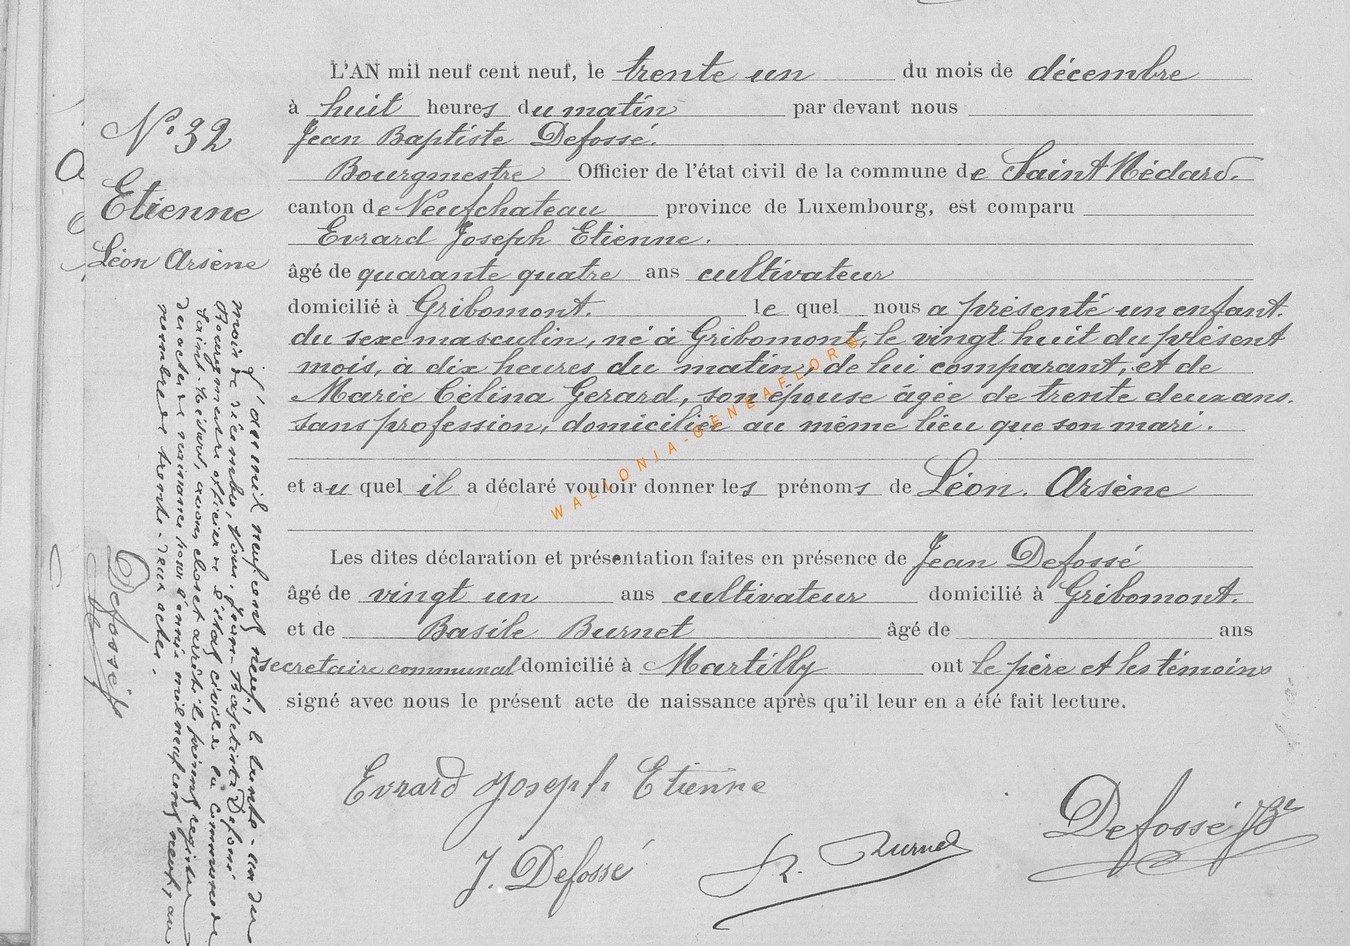 L'AN mil neuf cent neuf, le trente un du mois de décembre
à huit heures du matin par devant nous
Jean Baptiste Defossé.
Bourgmestre Officier de l'état civil de la commune de Saint Médard.
canton de Neufchateau province de Luxembourg, est comparu
Evrard Joseph Etienne.
âgé de quarante quatre ans cultivateur
domicilié à Gribomont. le quel nous a présenté un enfant.
du sexe masculin, né à Gribomont, le vingt huit du présent
mois, à dix heures du matin, de lui comparant, et de
Marie Célina Gerard, son épouse âgée de trente deux ans.
sans profession, domiciliée au même lieu que son mari.
et au quel il a déclaré vouloir donner les prénoms de Léon. Arsène
Les dites déclaration et présentation faites en présence de Jean Defossé
âgé de vingt un ans cultivateur domicilié à Gribomont.
et de Basile Burnet âgé de ans
secretaire communal domicilié à Martilly ont le père et les témoins
signé avec nous le présent acte de naissance après qu'il leur en a été fait lecture.
Evrard Joseph Etienne
J. Defossé
Burnet
Defossé JBte
N° 32
Etienne
Léon Arsène
L'an mil neuf cent neuf, le trente-un du
mois de décembre, Nous, Jean-Baptiste Defossé
Bourgmestre officier de l'état civil de la commune de
Saint-Médard, avons clos et arrêté le présent registre
des actes de naissance pour l'année mil neuf cent neuf, au
nombre de trente-deux actes.
Defossé
WALLONIA-GENEAFLORE